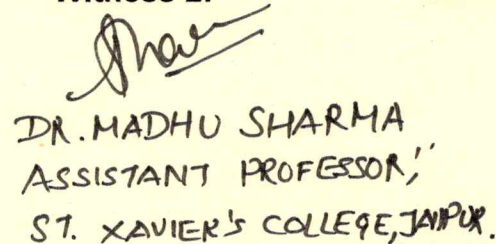 DR. MADHU SHARMA
ASSISTANT PROFESSOR,
ST. XAVIER'S COLLEGE, JAIPUR.